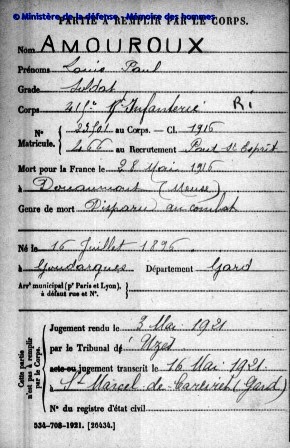 © Ministère de la défense - Mémoire des hommes
PARTIE À REMPLIR PAR LE CORPS.
Nom AMOUROUX
Prénoms Louis Paul
Grade Soldat
Corps Rt d'Infanterie R.I
N° Matricule. { au Corps. — Cl. 1916
466 au Recrutement Pont St Esprit
Mort pour la France le 28 Mai 1916
à Douaumont (Meuse)
Genre de mort Disparu au combat
Né le 16 Juillet 1896
à Goudargues Département Gard
Arrt municipal (pr Paris et Lyon), à défaut rue et N°.
Cette partie n'est pas à remplir par le Corps.
Jugement rendu le 3 Mai 1921
par le Tribunal d'Uzès
acte ou jugement transcrit le 16 Mai 1921
à St Marcel de Careiret (Gard)
N° du registre d'état civil
534-708-1921. [26434.]